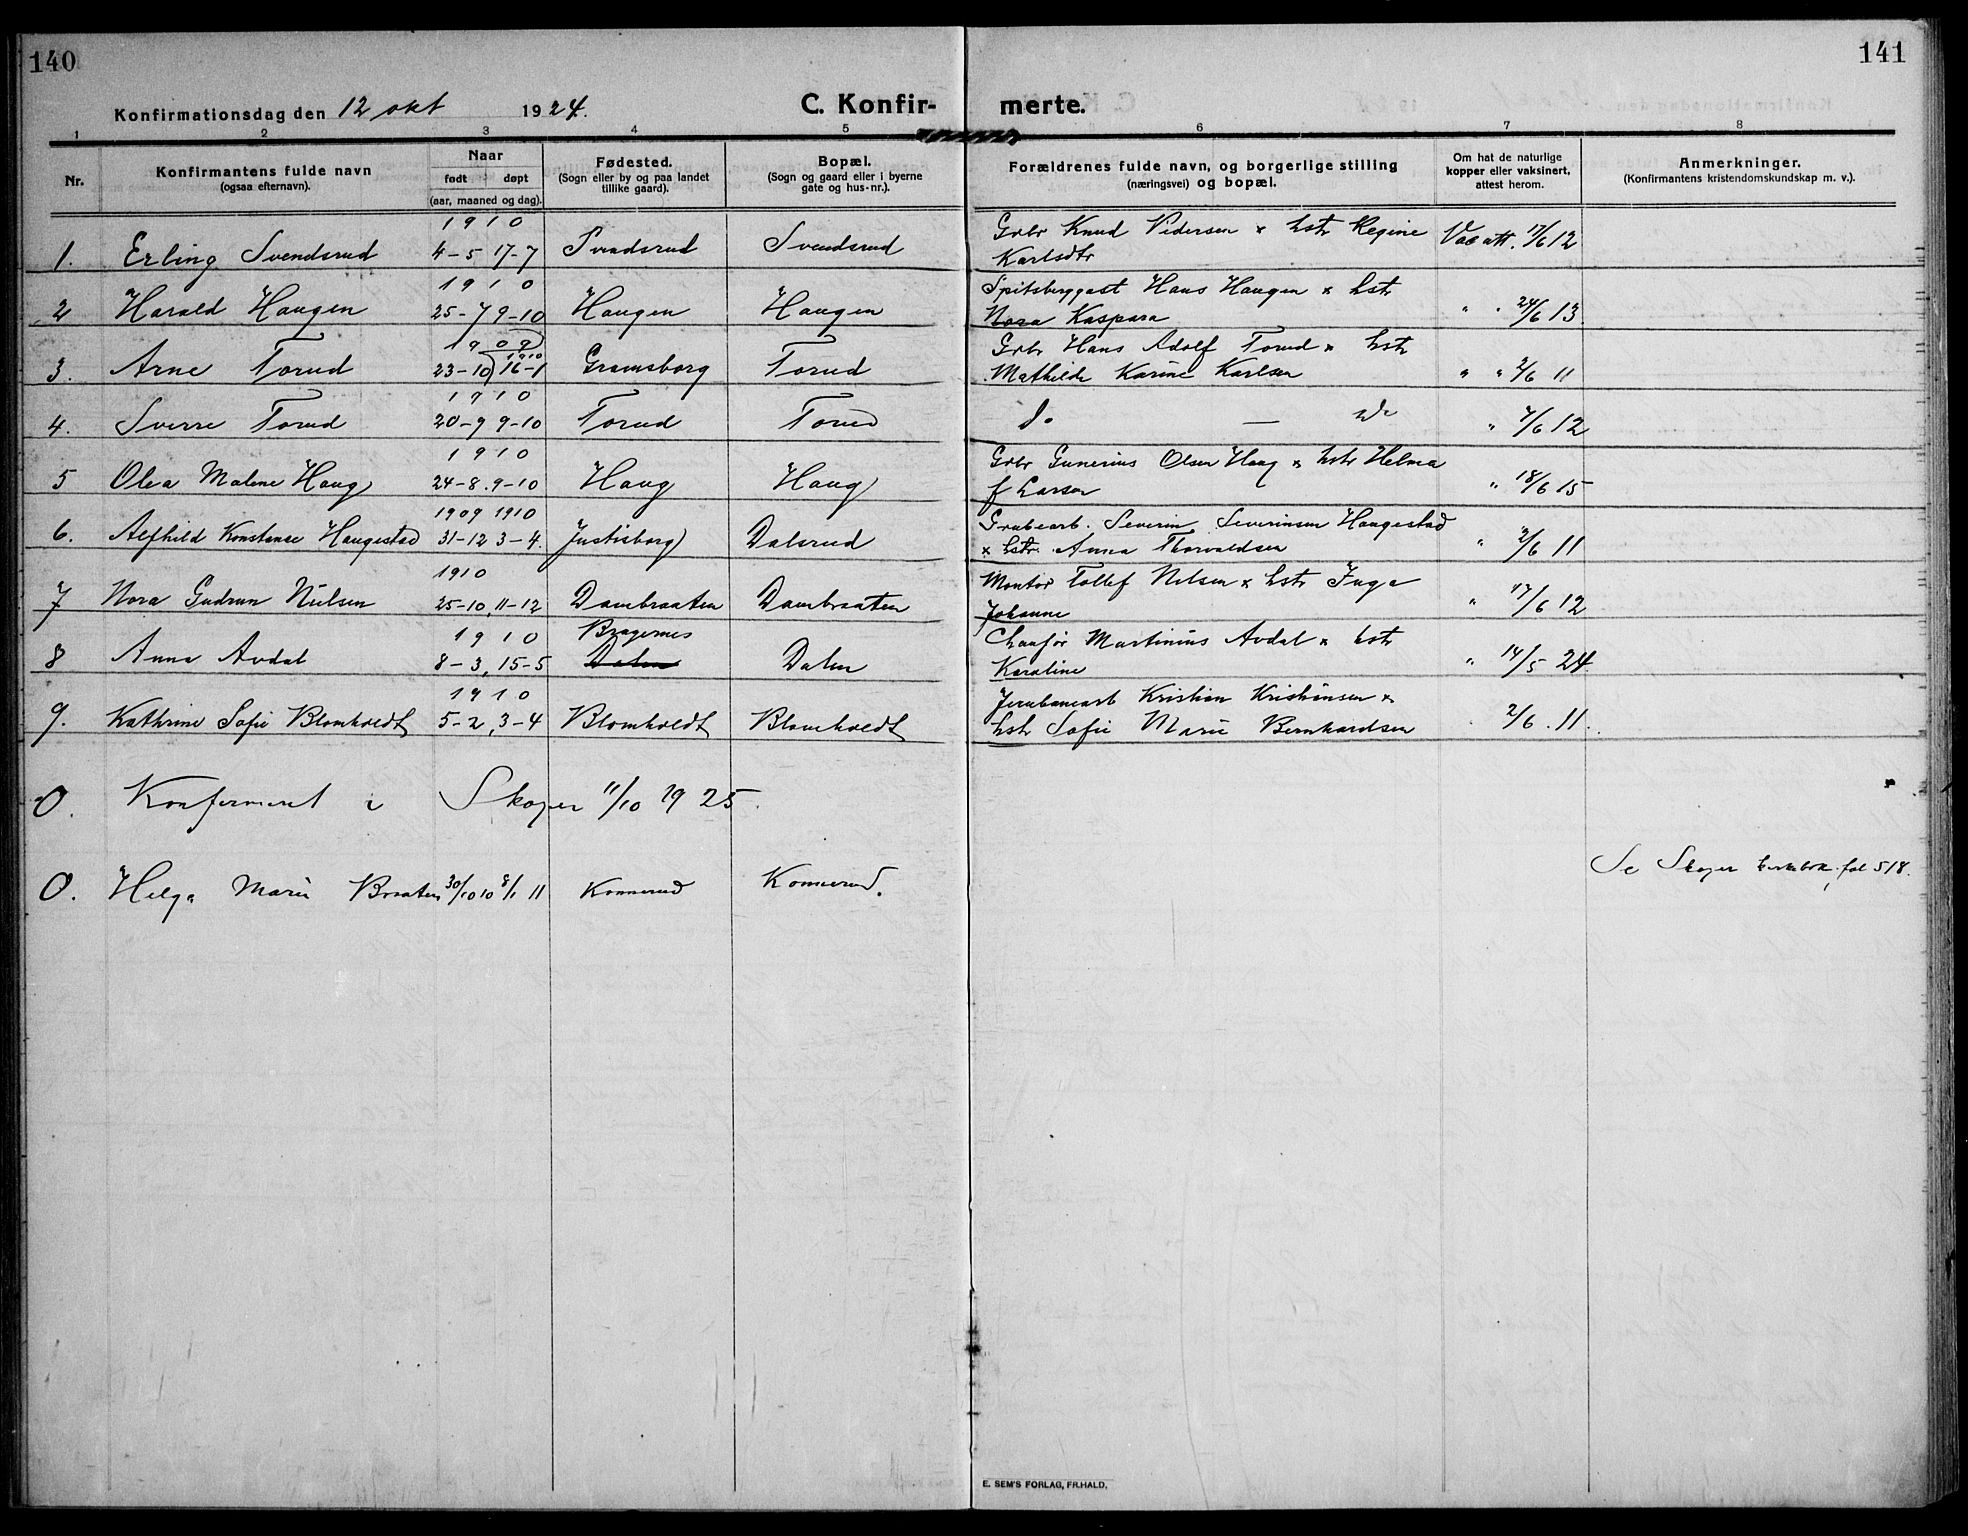 140
141
Konfirmationsdag den 12 okt 1924.
C. Konfir-
merte.
1 2 3 4 5 6 7 8
Nr.
Konfirmantens fulde navn
(ogsaa efternavn).
Naar
født døpt
(aar, maaned og dag).
Fødested.
(Sogn eller by og paa landet
tillike gaard).
Bopæl.
(Sogn og gaard eller i byerne
gate og hus-nr.).
Forældrenes fulde navn, og borgerlige stilling
(næringsvei) og bopæl.
Om hat de naturlige
kopper eller vaksinert,
attest herom.
Anmerkninger.
(Konfirmantens kristendomskundskap m. v.).
1910
1. Erling Svendsrud 4-5 17-7 Svendsrud Svendsrud Grbr Knud Pedersen x hstr Regine Vac att. 17/6 12
Karlsdtr
1910
2 Harald Haugen 25-7 9-10 Haugen Haugen Spitsberggast Hans Haugen x hstr " " 24/6 13
Nora Kaspara
1909
1910
3. Arne Torud 23-10 16-1 Gramsborg Torud Grbr Hans Adolf Torud x hstr
Mathilde Karine Karlsen " " 2/6 11
1910
4. Sverre Torud 20-9 9-10 Torud Torud do — do " 7/6 12
1910
5 Olea Malene Haug 24-8 9-10 Haug Haug Grbr Gunerius Olsen Haug x hstr Helma
f Larsen " 18/6 15
1909 1910
6. Alfhild Konstanse Haugestad 31-12 3-4. Justisborg Dalsrud Grubearb. Severin Severinsen Haugestad
x hstr. Anna Thorvaldsen " 2/6 11
1910
7 Nora Gudrun Nielsen 25-10, 11-12 Dambraaten Dambraaten Montør Tollef Nilsen x hstr Inga
Johanne " 17/6 12
1910 Bragernes
8 Anna Avdal 8-3, 15-5 Dalen Dalen Chaufør Martinius Avdal x hstr
Karoline " 14/5 24.
1910
9. Kathrine Sofie Blomholdt 5-2, 3-4 Blomholdt Blomholdt Jernbanearb Kristian Kristiansen x
hstr Sofie Marie Bernhardsen 2/6. 11.
0. Konfermert i Skoger 11/10 1925.
0. Helga Marie Braaten 30/10 10 8/1 11 Konnerud Konnerud. Se Skoger kirkebok, fol 518.
E. SEM'S FORLAG, FR.HALD.